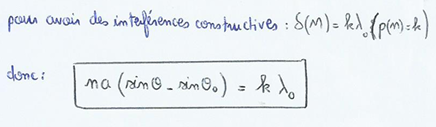 pour avoir des interférences constructives : δ(M) = kλ₀ (p(M) = k)
donc : na (sinθ - sinθ₀) = k λ₀